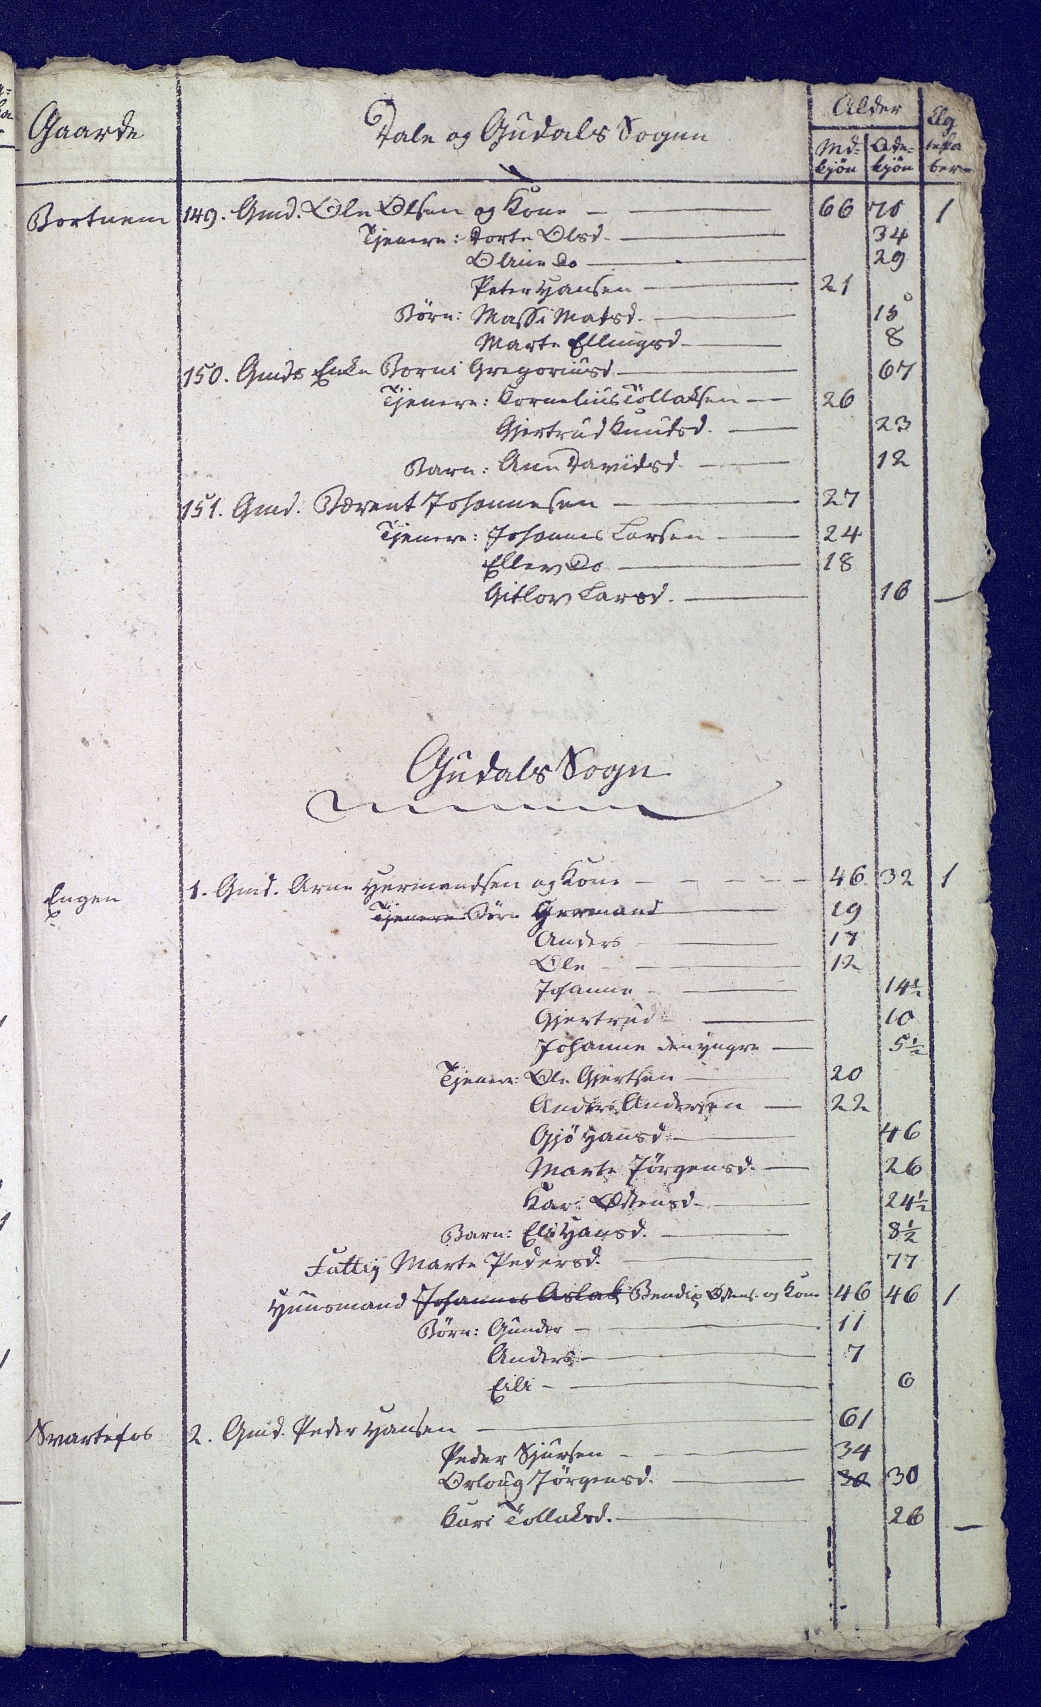 Gaarde Dale og Gudals Sogne Alder Eg
Md- Qde- teska
kjön kjön ber
Bortnem 149. Gmd. Ole Olsen og Kone 66 70 1
Tjenere: Dorte Olsd. 34
Oline Do 29
Peter Hansen 21
Börn: Massi Matsd. 15
Marte Ellingsd 8
150. Gmds Enke Borni Gregoriusd 67
Tjenere: Kornelius Tollaksen 26
Gjertrud Knudsd. 23
Barn: Ane Davidsd 12
151. Gmd. Bærent Johannesen 27
Tjenere: Johannes Larsen 24
Ellev Do 18
Gitlov Larsd. 16 —
Gudals Sogn
Engen 1. Gmd. Arne Hermandsen og Kone 46 32 1
Tjenere Börn Germand 19
Anders 17
Ole 12
Johanne 14½
Gjertrud 10
Johanne den yngre 5½
Tjenere: Ole Gjertsen 20
Anders Andersen 22
Gjö Hansd. 46
Marte Jörgensd. 26
Kari Östensd. 24½
Barn: Eli Hansd. 8½
Fattig Marte Pedersd. 77
Huusmand Johannes Aslak Bendix Östens. og Kone 46 46 1
Börn: Gunder 11
Anders 7
Eili 6
Svartefos 2. Gmd. Peder Hansen 61
Peder Sjursen 34
Orloug Jörgensd. 30 30
Kari Tollaksd. 26 —